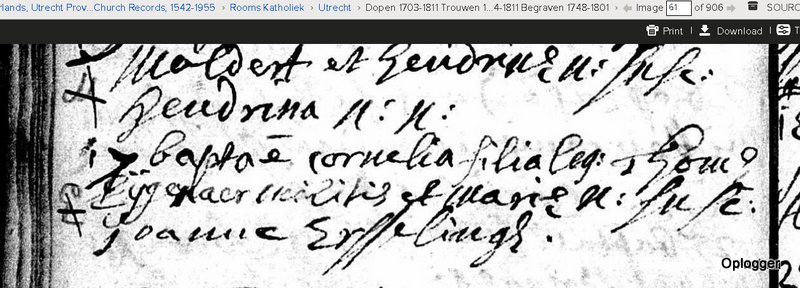 rlands, Utrecht Prov...Church Records, 1542-1955 › Rooms Katholiek › Utrecht › Dopen 1703-1811 Trouwen 1...4-1811 Begraven 1748-1801 › Image 61 of 906 SOURC
Print | Download | T
Moldert et Hendrinæ n: susc:
Hendrina n: n:
17 baptaē cornelia filia leg: Thomæ
militis et mariæ n: susc:
Joanne Esselingh.
Oplogger